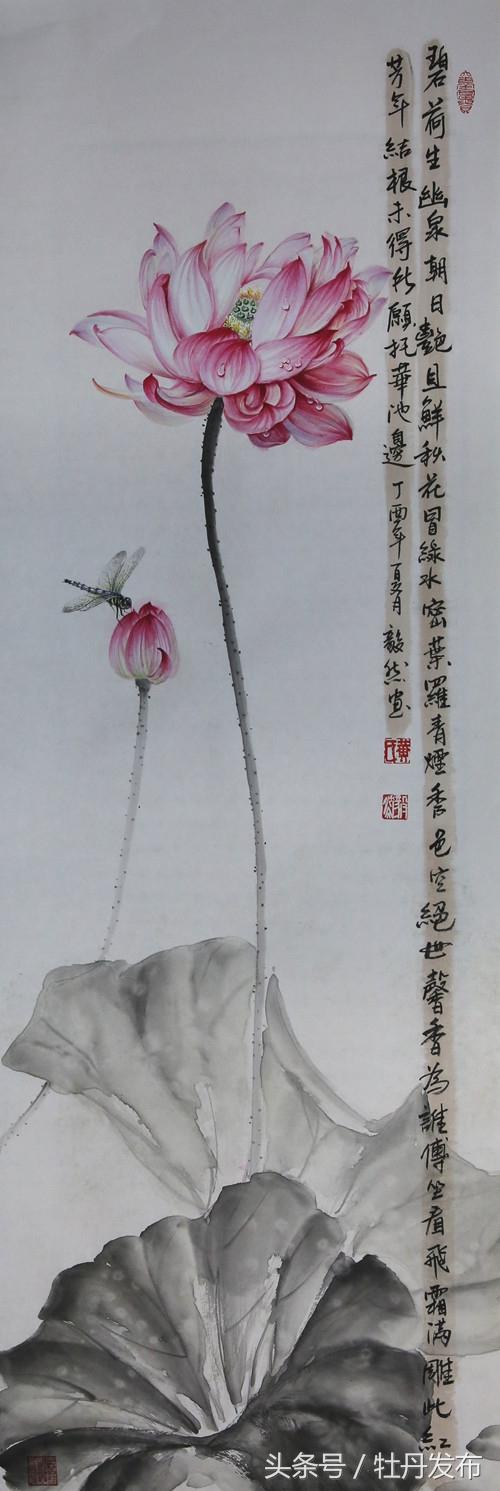 碧荷生幽泉朝日艷且鮮秋花冒綠水密葉羅青煙秀色空絕世馨香為誰傳坐看飛霜滿雕此紅
芳年結根未得所願托華池邊 丁酉年夏月 毅然畫
头条号 / 牡丹发布